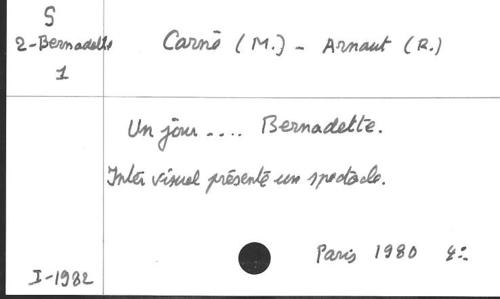 S
2-Bernadette
1
Carné (M.) - Arnaut (R.)
Un jour .... Bernadette.
Inter visuel présente un spectacle.
Paris 1980 4:
I-1982